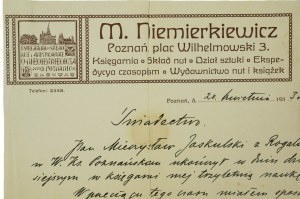 M. Niemierkiewicz
Poznań plac Wilhelmowski 3.
Księgarnia • Skład nut • Dział sztuki • Ekspe-
dycya czasopism • Wydawnictwo nut i książek
Poznań, d. 20 kwietnia 191
Świadectwo.
Pan Mieczysław Jaskulski z Rogoź
w W. Ks. Poznańskiem ukończył w dniu dzi
siejszym w księgarni mej trzyletnią naukę
W przeciągu tego czasu miałem spos